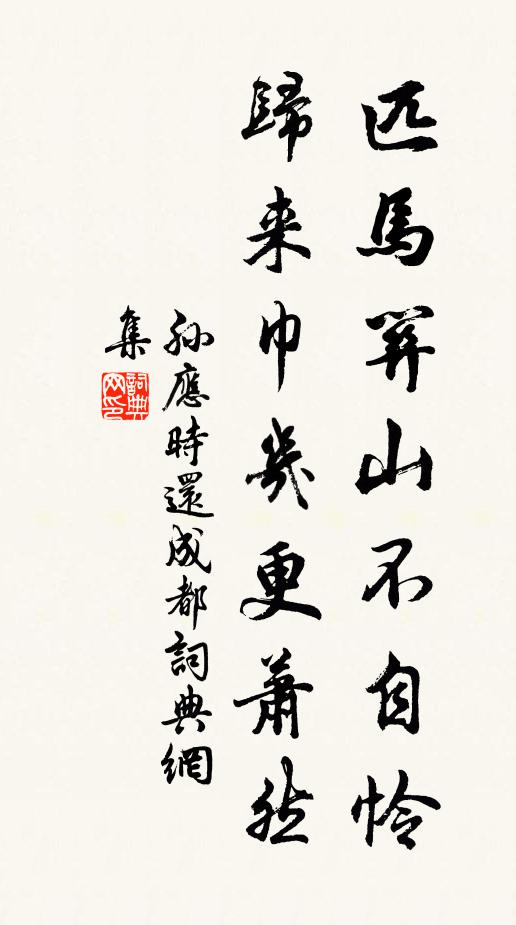 匹馬關山不自怜
歸来巾幾更蕭然
孫應時還成都詞典網
集
詞典网印